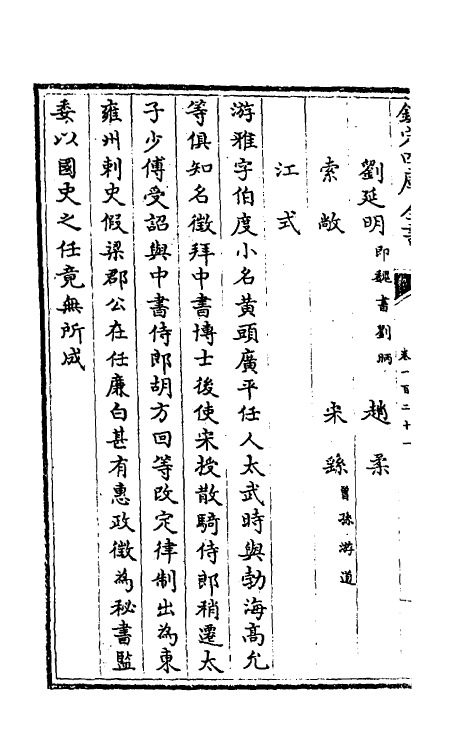 欽定四庫全書
卷一百二十一
劉延明即魏書劉昞 趙柔
索敞 宋繇曾孫游道
江式
游雅字伯度小名黄頭廣平任人太武時與勃海高允
等俱知名徵拜中書博士後使宋授散騎侍郎稍遷太
子少傅受詔與中書侍郎胡方回等改定律制出為東
雍州刺史假梁郡公在任廉白甚有惠政徵為秘書監
委以國史之任竟無所成